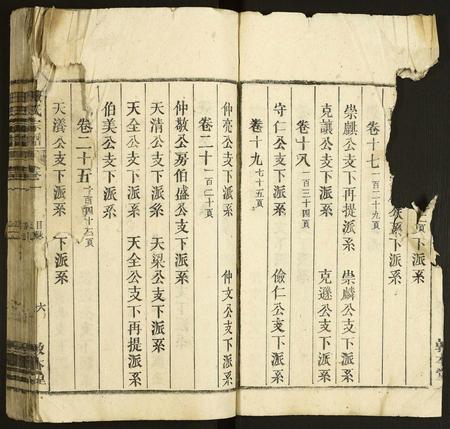 下派系
系 公支下派系
卷十七 一百二十九頁
崇麒公支下再提派系 崇麟公支下派系
克讓公支下派系 克遜公支下派系
卷十八 一百三十四頁
守仁公支下派系 儉仁公支下派系
卷十九 七十五頁
仲亮公支下派系 仲文公支下派系
卷二十 一百二十頁
仲敬公房伯盛公支下派系
天清公支下派系 天梁公支下派系
天全公支下派系 天全公支下再提派系
伯美公支下派系
卷二十五
天瀠公支下派系 下派系
氏宗譜 卷一 目 六